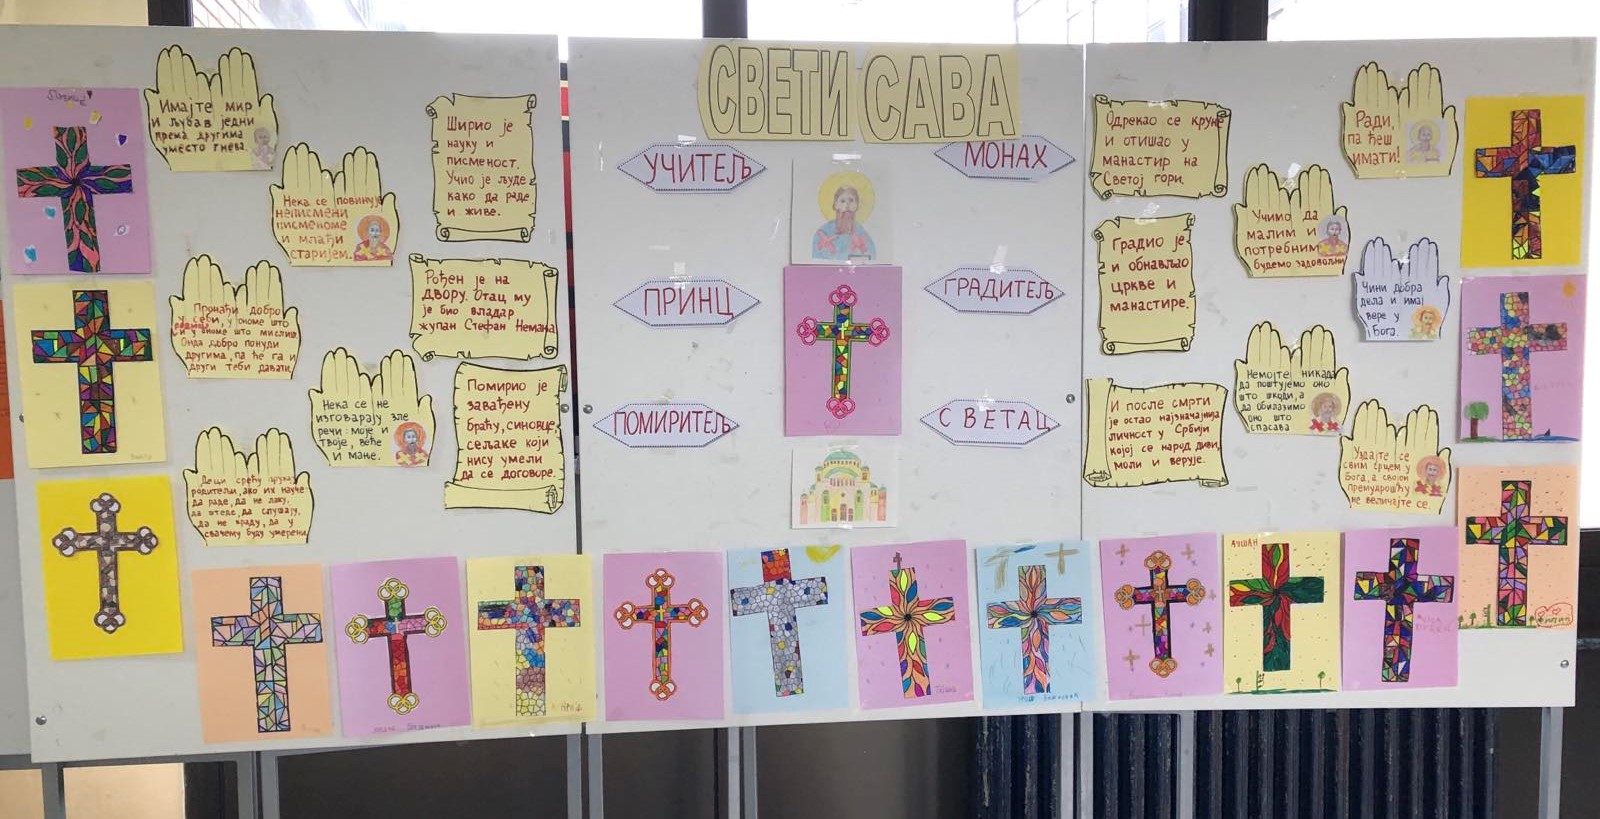 СВЕТИ САВА
Имајте мир
и љубав једни
према другима
уместо гнева.
Нека се повинују
неписмени
писмениме
и млађи
старијем.
Ширио је
науку и
писменост.
Учио је људе
како да раде
и живе.
Пронађи добро
у себи, у ономе што
и у ономе што мислиш.
Онда добро понуди
другима, па ће га и
други теби давати.
Рођен је на
двору. Отац му
је био владар
жупан Стефан Немања
Нека се не
изговарају зле
речи: моје и
твоје, веће
и мање.
Помирио је
завађену
браћу, синовце,
сељаке који
нису умели
да се договоре.
Децы срећу
родитељи, ако их науче
да раде, да не лажу,
да штеде, да слушају,
да не краду, да у
свачему буду умерени
УЧИТЕЉ
МОНАХ
ПРИНЦ
ГРАДИТЕЉ
ПОМИРИТЕЉ
СВЕТАЦ
Одрекао се круне
и отишао у
манастир на
Светој гори.
Ради,
па ћеш
имати!
Градио је
и обнављао
цркве и
манастире.
Учимо да
малим и
потребним
будемо задовољни
Чини добра
дела и имај
вере у
Бога.
И после смрти
је остао најзначајнија
личност у Србији
којој се народ диви,
моли и верује.
Немојте никада
да поштујемо оно
што шкоди, а
да обилазимо
оно што
спасава
Уздајте се
свим срцем у
Бога, а својом
премудрошћу
не величајте се.
Филип